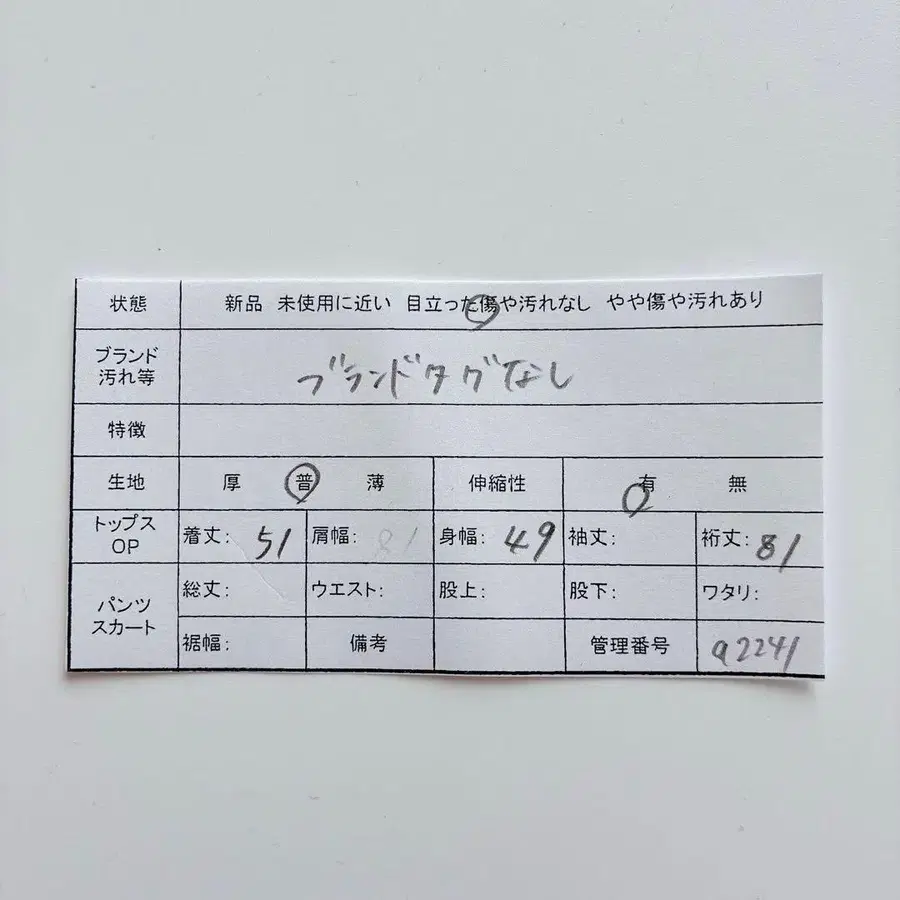 状態 新品 未使用に近い 目立った傷や汚れなし やや傷や汚れあり
ブランド
汚れ等 ブランドタグなし
特徴
生地 厚 普 薄 伸縮性 有 無
トップス
OP 着丈: 51 肩幅: 身幅: 49 袖丈: 裄丈: 81
パンツ
スカート
総丈: ウエスト: 股上: 股下: ワタリ:
裾幅: 備考 管理番号 a2241